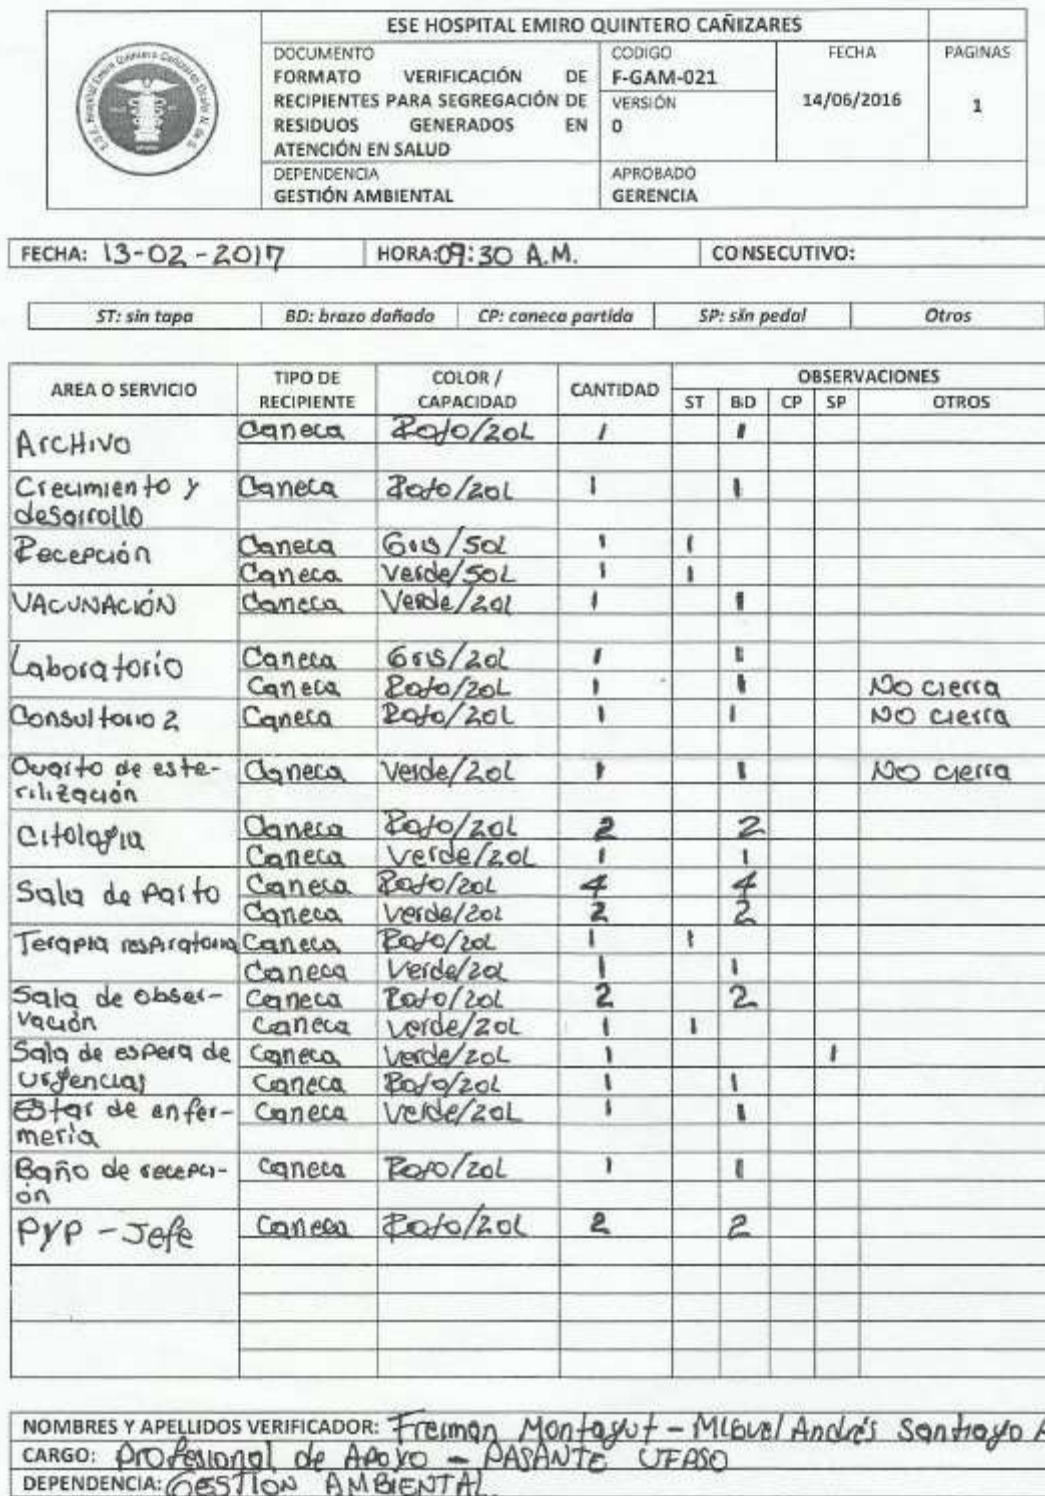 ESE HOSPITAL EMIRO QUINTERO CAÑIZARES
DOCUMENTO
FORMATO VERIFICACIÓN DE
RECIPIENTES PARA SEGREGACIÓN DE
RESIDUOS GENERADOS EN
ATENCIÓN EN SALUD
CODIGO
F-GAM-021
VERSIÓN
0
FECHA
14/06/2016
PAGINAS
1
DEPENDENCIA
GESTIÓN AMBIENTAL
APROBADO
GERENCIA
FECHA: 13-02-2017 HORA: 09:30 A.M. CONSECUTIVO:
ST: sin tapa BD: brazo dañado CP: caneca partida SP: sin pedal Otros
AREA O SERVICIO TIPO DE RECIPIENTE COLOR / CAPACIDAD CANTIDAD OBSERVACIONES
ST BD CP SP OTROS
Archivo Caneca Rojo/20L 1 1
Crecimiento y Caneca Rojo/20L 1 1
desarrollo
Recepción Caneca Gris/50L 1 1
Caneca Verde/50L 1 1
VACUNACIÓN Caneca Verde/20L 1 1
Laboratorio Caneca Gris/20L 1 1
Caneca Rojo/20L 1 1 No cierra
Consultorio 2 Caneca Rojo/20L 1 1 NO cierra
Cuarto de este- Caneca Verde/20L 1 1 No cierra
rilización
Citología Caneca Rojo/20L 2 2
Caneca Verde/20L 1 1
Sala de Parto Caneca Rojo/20L 4 4
Caneca Verde/20L 2 2
Terapia respiratoria Caneca Rojo/20L 1 1
Caneca Verde/20L 1 1
Sala de obser- Caneca Rojo/20L 2 2
vación Caneca Verde/20L 1 1
Sala de espera de Caneca Verde/20L 1 1
urgencias Caneca Rojo/20L 1 1
Estar de enfer- Caneca Verde/20L 1 1
mería
Baño de recepci- Caneca Rojo/20L 1 1
ón
PYP - Jefe Caneca Rojo/20L 2 2
NOMBRES Y APELLIDOS VERIFICADOR: Freiman Montagut - Miguel Andrés Santiago A
CARGO: Profesional de Apoyo - PASANTE UFPSO
DEPENDENCIA: GESTION AMBIENTAL.